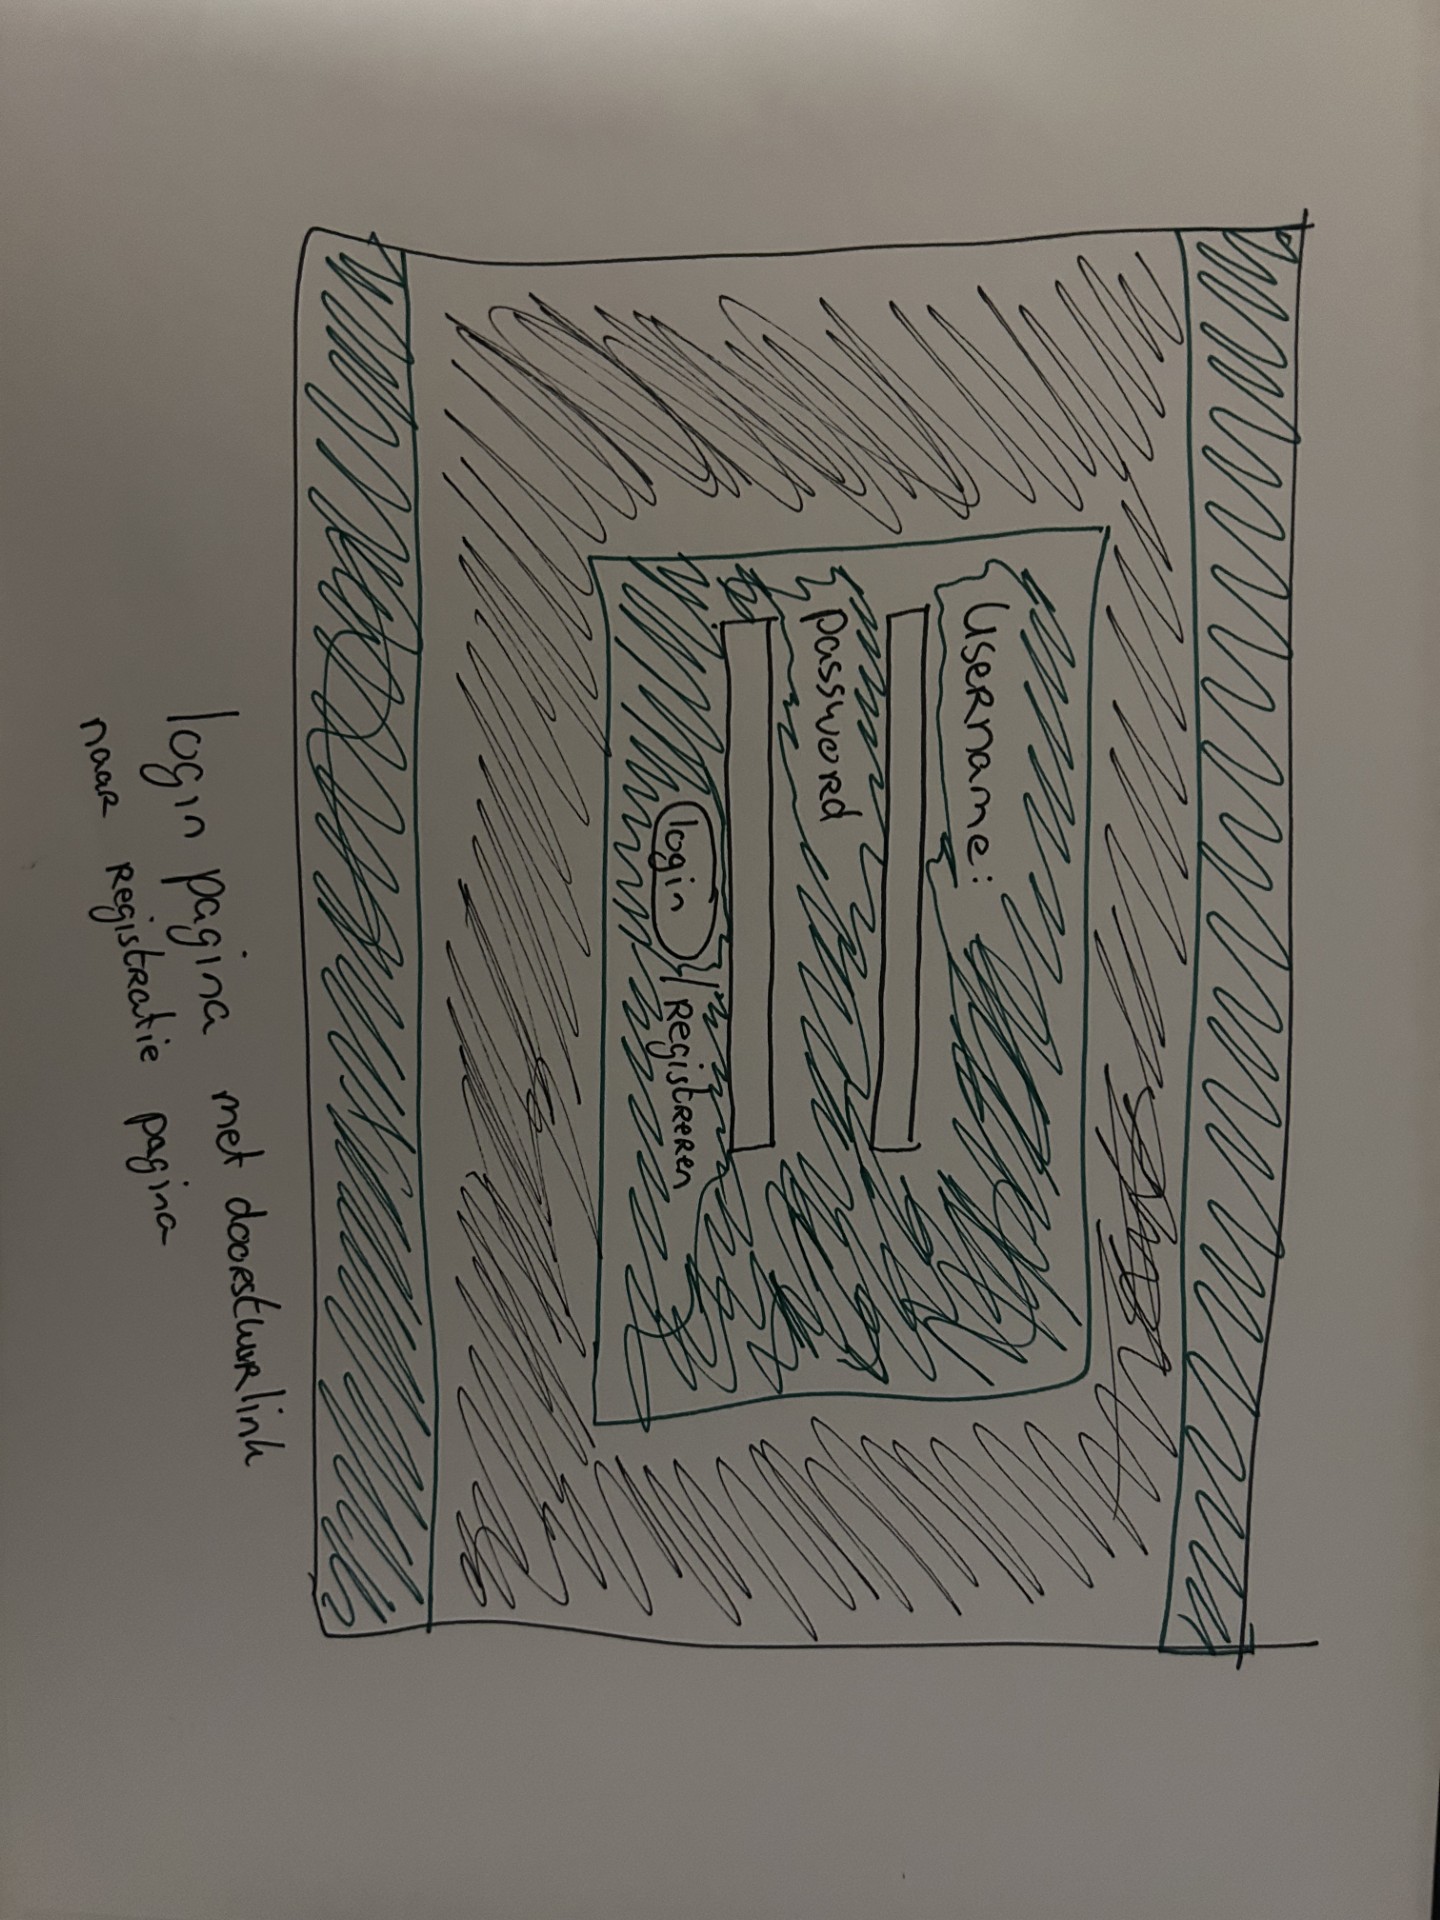 Username:
password
login / Registreren
login pagina met doorstuurlink
naar registratie pagina